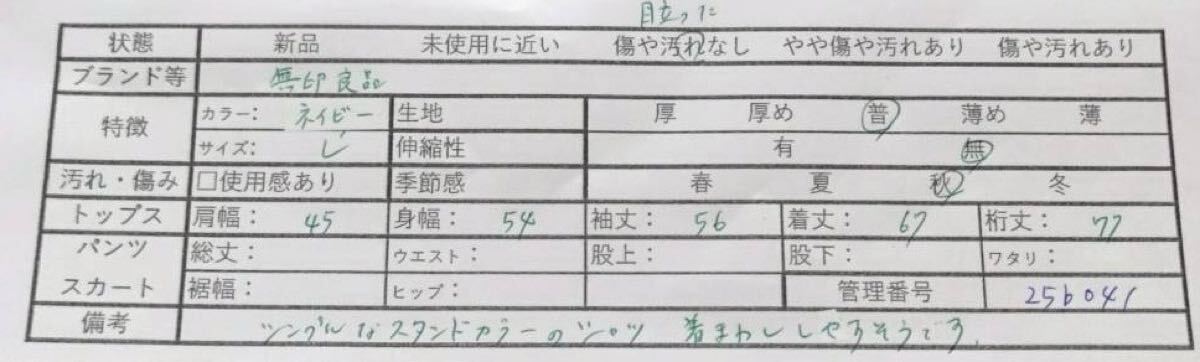 目立った
状態 新品 未使用に近い 傷や汚れなし やや傷や汚れあり 傷や汚れあり
ブランド等 無印良品
特徴 カラー: ネイビー 生地 厚 厚め 普 薄め 薄
サイズ: L 伸縮性 有 無
汚れ・傷み □使用感あり 季節感 春 夏 秋 冬
トップス 肩幅: 45 身幅: 54 袖丈: 56 着丈: 67 裄丈: 77
パンツ 総丈: ウエスト: 股上: 股下: ワタリ:
スカート 裾幅: ヒップ: 管理番号 256041
備考 シンプルなスタンドカラーのシャツ 着まわししやすそうです